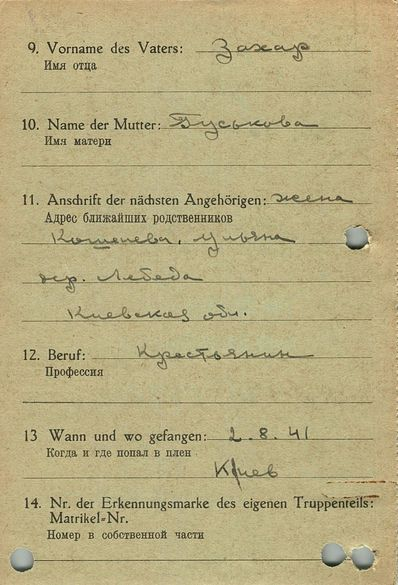 9. Vorname des Vaters: Захар
Имя отца
10. Name der Mutter: Гуськова
Имя матери
11. Anschrift der nächsten Angehörigen: жена
Адрес ближайших родственников
Ульяна
Лебеда
Киевская обл.
12. Beruf: Крестьянин
Профессия
13 Wann und wo gefangen: 2.8.41
Когда и где попал в плен
Киев
14. Nr. der Erkennungsmarke des eigenen Truppenteils:
Matrikel-Nr.
Номер в собственной части